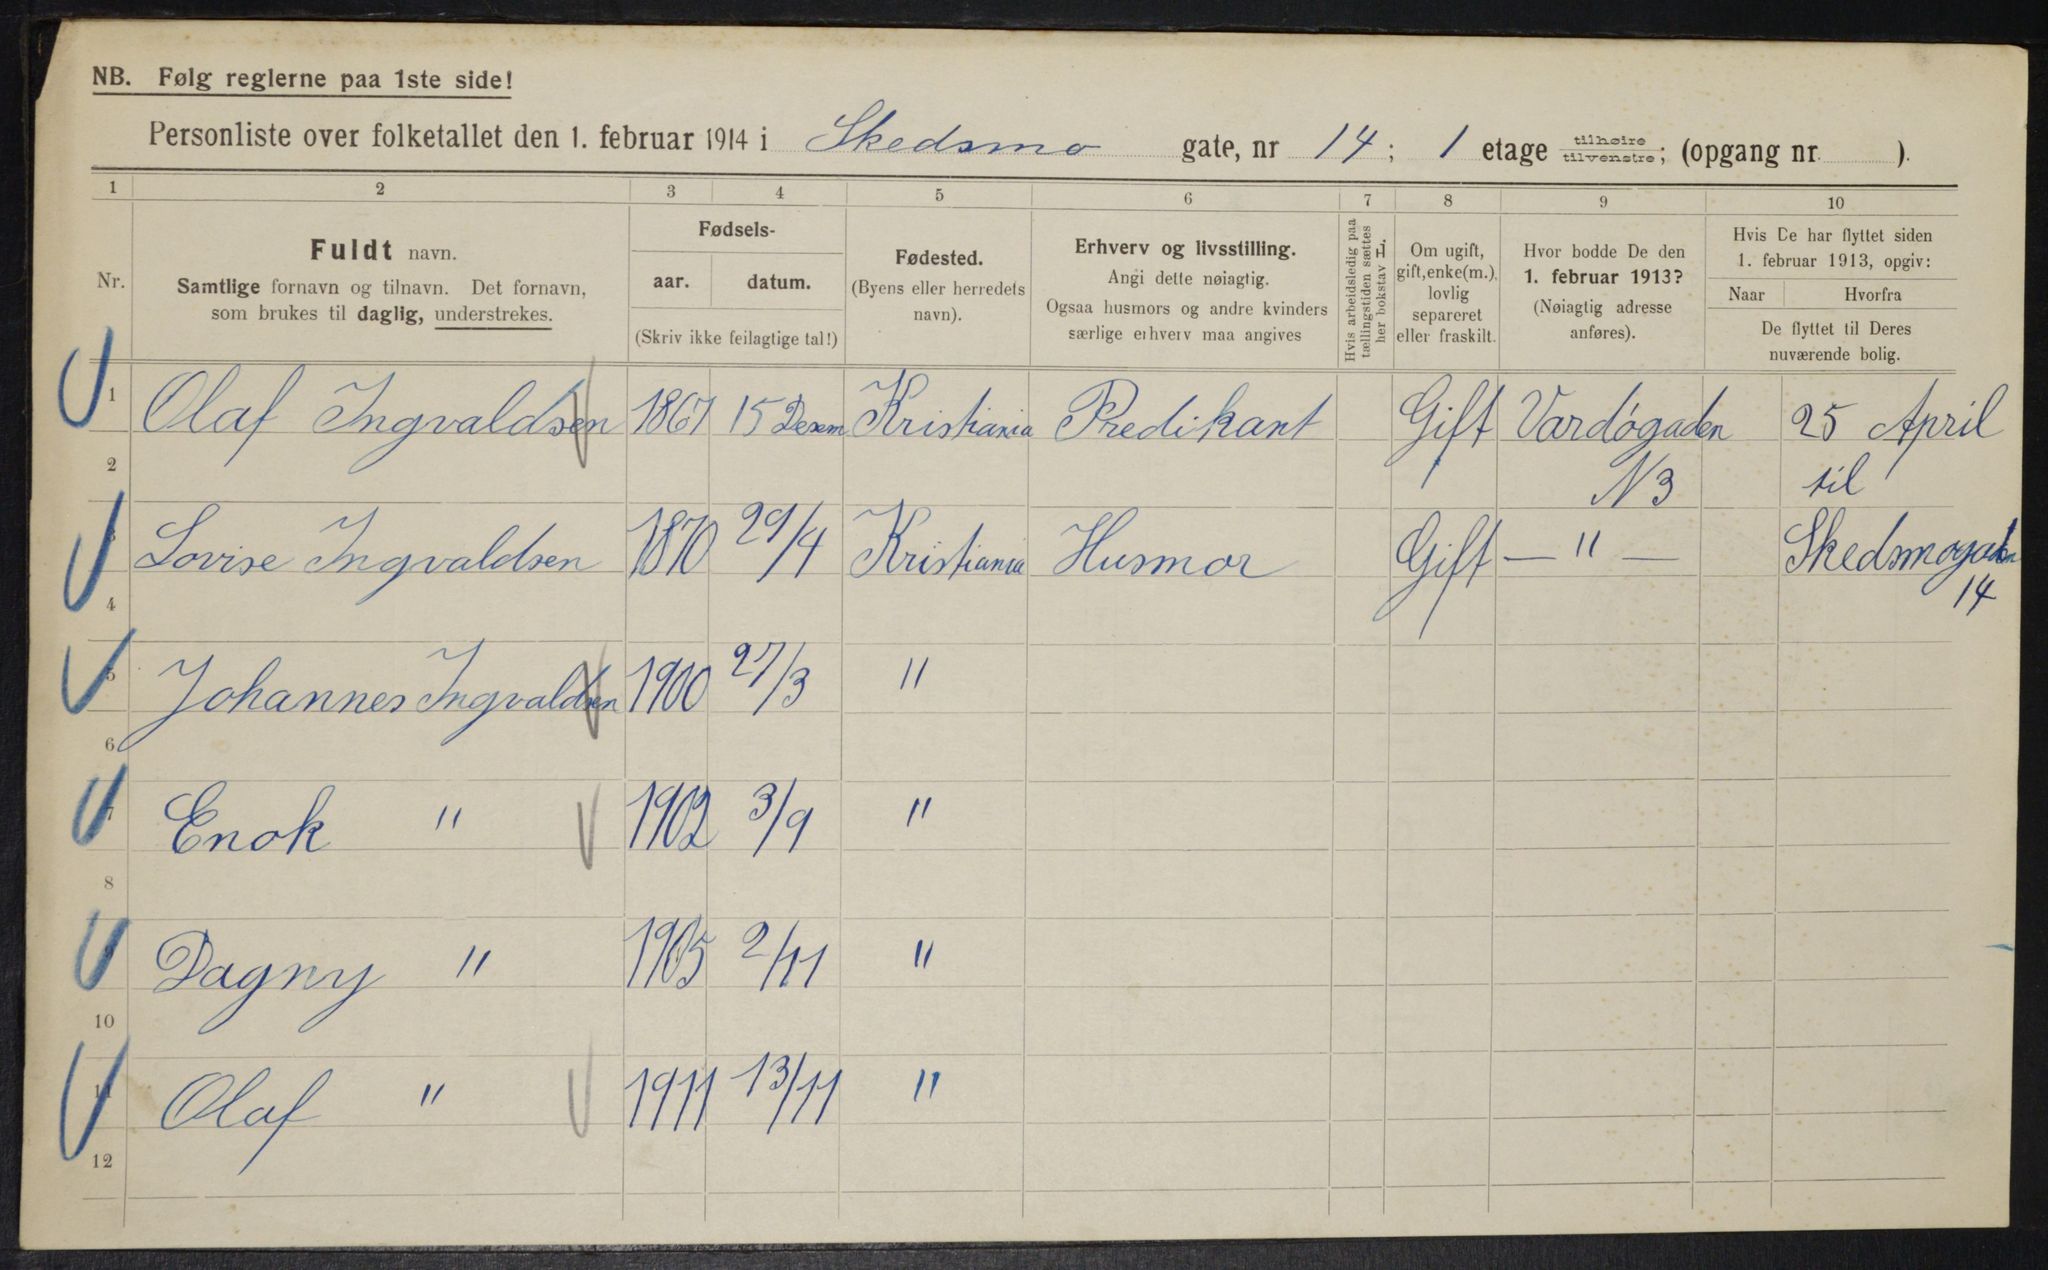 NB. Følg reglerne paa 1ste side!
Personliste over folketallet den 1. februar 1914 i Skedsmo gate, nr 14; 1 etage tilhøire/tilvenstre; (opgang nr. ).
1 2 3 4 5 6 7 8 9 10
Nr.
Fuldt navn.
Samtlige fornavn og tilnavn. Det fornavn,
som brukes til daglig, understrekes.
Fødsels-
aar. datum.
(Skriv ikke feilagtige tal!)
Fødested.
(Byens eller herredets
navn).
Erhverv og livsstilling.
Angi dette nøiagtig.
Ogsaa husmors og andre kvinders
særlige erhverv maa angives
Hvis arbeidsledig paa
tællingstiden sættes
her bokstav L.
Om ugift,
gift, enke(m.),
lovlig
separeret
eller fraskilt.
Hvor bodde De den
1. februar 1913?
(Nøiagtig adresse
anføres).
Hvis De har flyttet siden
1. februar 1913, opgiv:
Naar Hvorfra
De flyttet til Deres
nuværende bolig.
1 Olaf Ingvaldsen 1867 15 Desem Kristiania Predikant Gift Vardøgaden 25 April
2 N 3 til
3 Lovise Ingvaldsen 1870 29/4 Kristiania Husmor Gift — " — Skedsmogaden
4 14
5 Johannes Ingvaldsen 1900 27/3 "
6
7 Enok " 1902 3/9 "
8
9 Dagny " 1905 2/11 "
10
11 Olaf " 1911 13/11 "
12